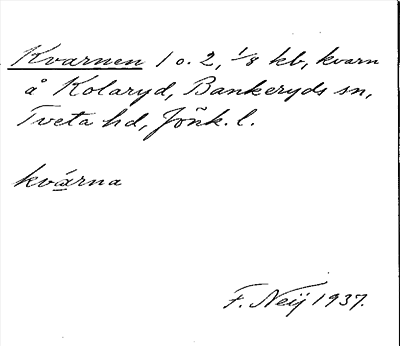 Kvarnen 1 o. 2, 1/8 kb, kvarn
å Kolaryd, Bankeryds sn,
Tveta hd, Jönk. l.
kvárna
F. Neij 1937.